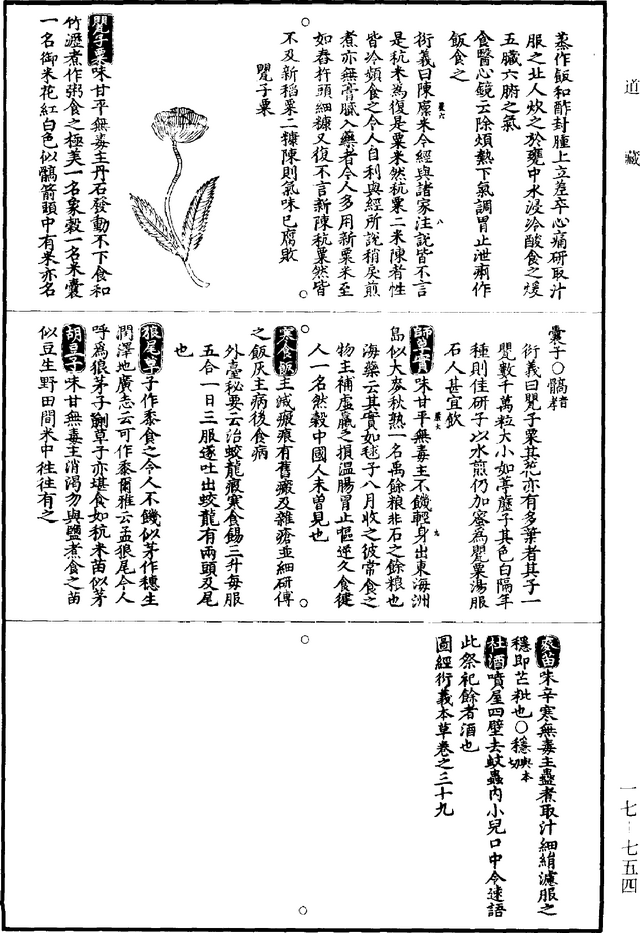 道藏
蒸作飯和酢封腫上立差卒心痛研取汁
服之北人炊之於甕中水浸冷酸食之煖
五臟六腑之氣
食醫心鏡云除煩熱下氣調胃止泄痢作
飯食之
衍義曰陳廩米今經與諸家注說皆不言
是秔米為復是粟米然秔粟二米陳者性
皆冷頻食之令人自利與經所說稍戾煎
煮亦無膏膩入藥者今人多用新粟米至
如舂杵頭細糠又復不言新陳秔粟然皆
不及新稻粟二糠陳則氣味已腐敗
罌子粟
罌子粟味甘平無毒主丹石發動不下食和
竹瀝煮作粥食之極美一名象穀一名米囊
一名御米花紅白色似髇箭頭中有米亦名
囊子○髇音孝
衍義曰罌子粟其花亦有多葉者其子一
罌數千萬粒大小如葶藶子其色白隔年
種則佳研子以水煎仍加蜜為罌粟湯服
石人甚宜飲
師草實味甘平無毒主不饑輕身出東海洲
島似大麥秋熟一名禹餘粮非石之餘粮也
海藥云其實如毬子八月收之彼常食之
物主補虛羸之損溫腸胃止嘔逆久食健
人一名然穀中國人未曾見也
寒食飯主滅瘢痕有舊瘢及雜瘡並細研傅
之飯灰主病後食病
外臺秘要云治蛟龍瘕寒食餳三升每服
五合一日三服遂吐出蛟龍有兩頭及尾
也
狼尾草子作黍食之令人不饑似茅作穗生
澤地廣志云可作黍爾雅云孟狼尾今人
呼為狼茅子蒯草子亦堪食如秔米苗似茅
胡豆子味甘無毒主消渴勿與鹽煮食之苗
似豆生野田間米中往往有之
味辛寒無毒主蠱煮取汁細絹濾服之
穩即芒秕也○穩與本切
社酒噴屋四壁去蚊蟲內小兒口中令速語
此祭祀餘者酒也
圖經衍義本草卷之三十九
一七—七五四